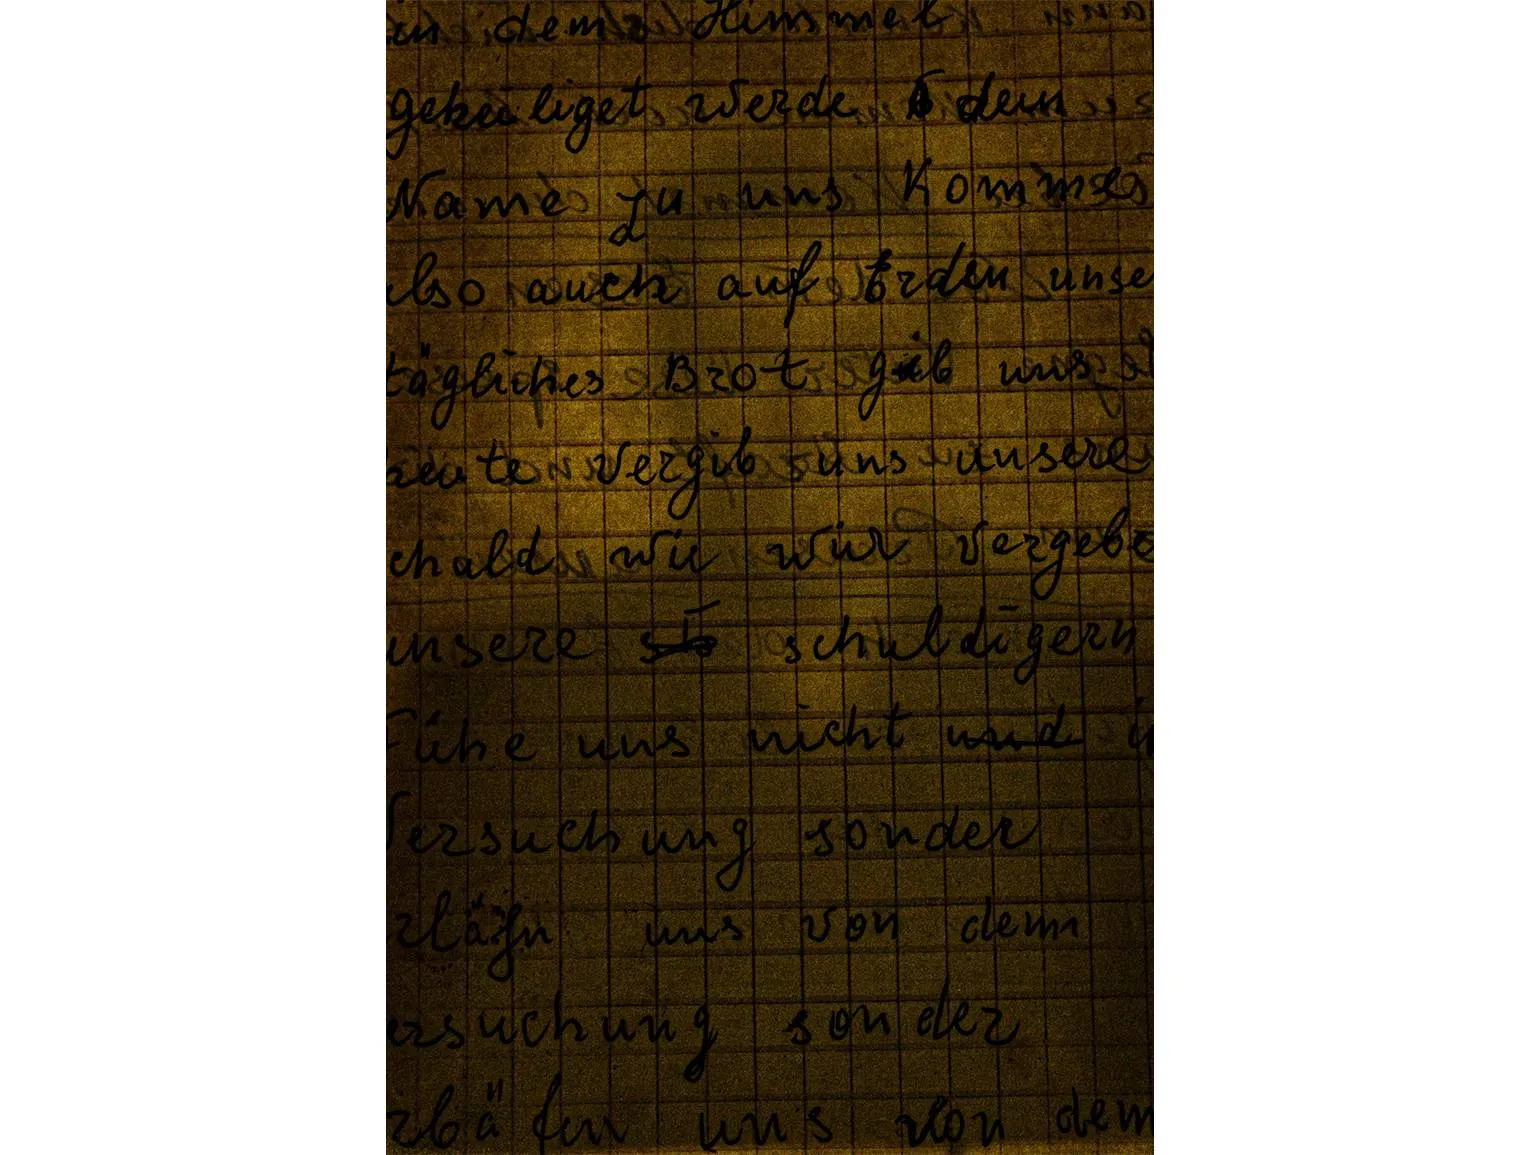 in dem Himmel
geheiliget werde dein
Name zu uns Kommse
also auch auf Erden unse
tägliches Brot gib uns
heute vergib uns unsere
schald wie wir vergebe
unsere schuldigern
Fühe uns nicht und in
Versuchung sonder
uns von dem
ersuchung sonder
uns von dem